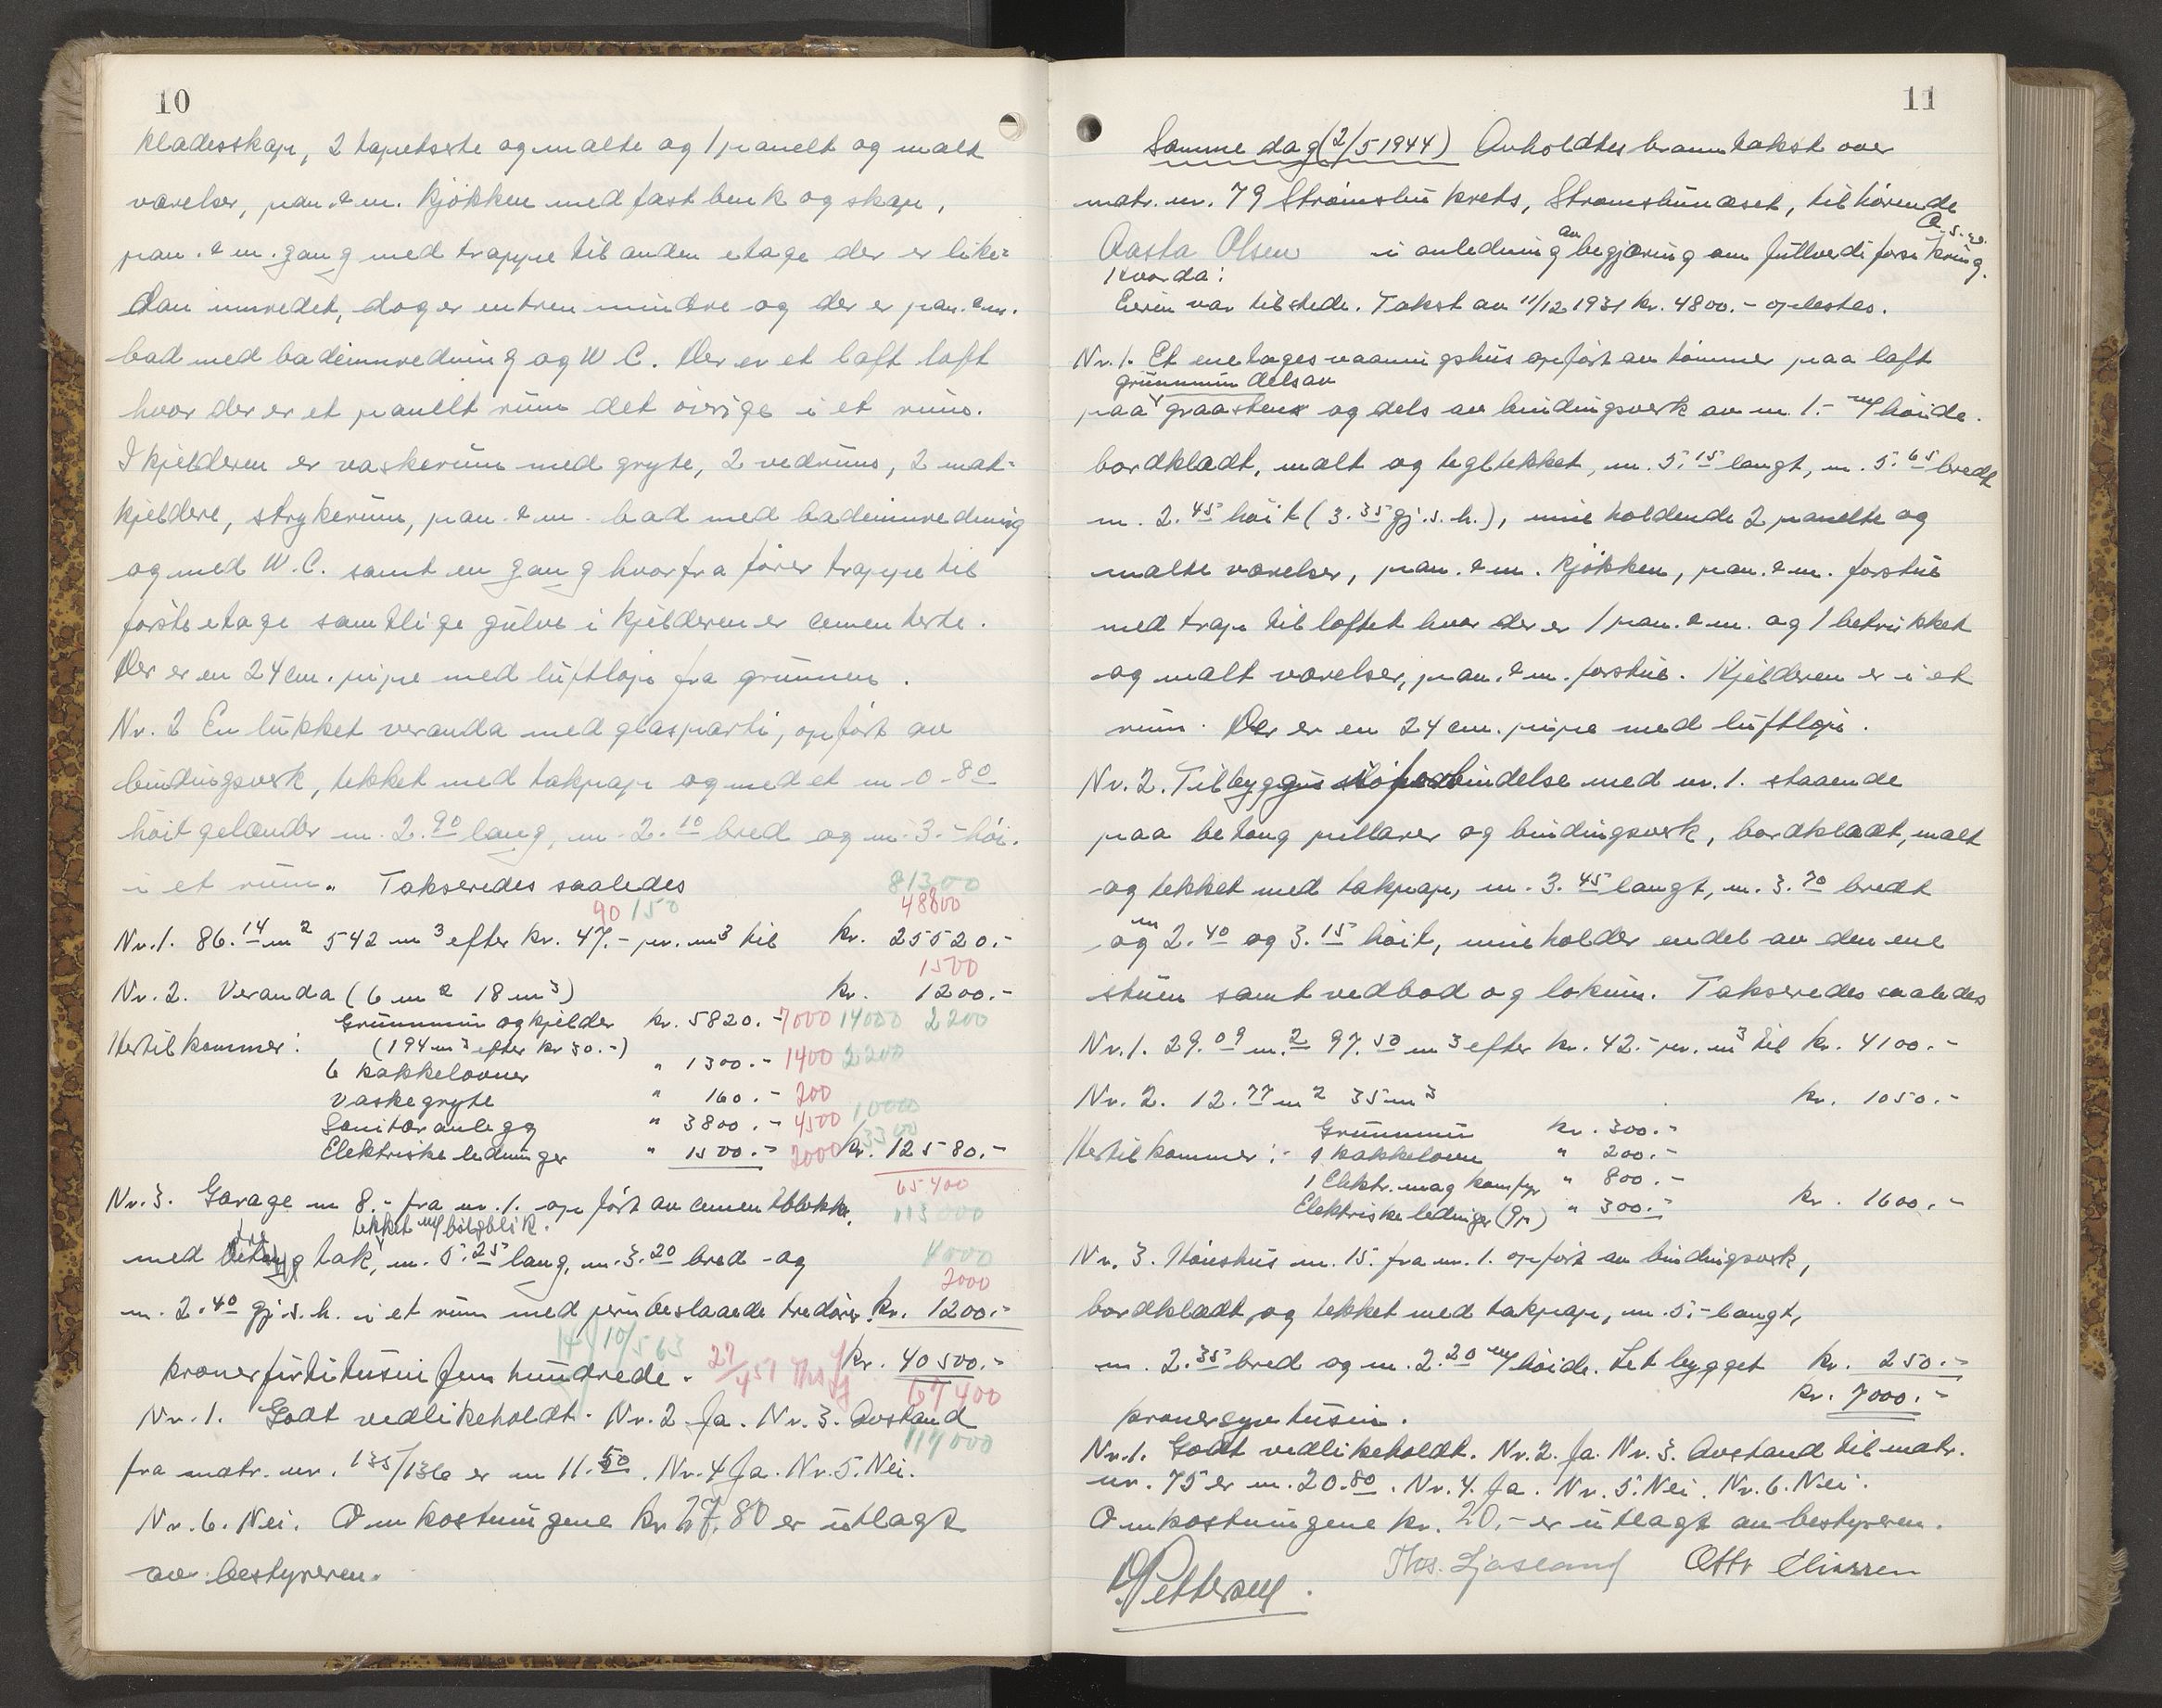 10
kladesskap, 2 tapetserte og malte og 1 panelt og malt
værelser, pan. & m. kjøkken med fast benk og skap,
pan. & m. gang med trappe til anden etage der er like=
dan innredet, dog er entren mindre og der er pan. & m.
bad med badeinnredning og W C. Der er et loft
hvor der er et panelt rum det øvrige i et rum.
I kjelderen er vaskerum med gryte, 2 vedrum, 2 mat=
kjeldere, strykerum, pan. & m. bad med badeinnredning
og med W.C. samt en gang hvorfra fører trappe til
første etage samtlige gulve i kjelderen er cementerte.
Der er en 24 cm. pipe med luftløp fra grunnen.
Nr. 2 En lukket veranda med glasparti, opført av
bindingsverk, tekket med takpap og med et m 0-80
høit gelænder m. 2.90 lang, m. 2.10 bred og m. 3.- høi.
i et rum. Takseredes saaledes
81300
90 150
48800
Nr. 1. 86.14 m2 542 m3 efter kr. 47.- pr. m3 til kr. 25520.-
1500
Nr. 2. Veranda (6 m2 18 m3) kr. 1200.-
Grunnmur og kjelder kr. 5820.- 7000 14000 2200
Hertil kommer: (194 m3 efter kr 30.-)
6 kakkelovner " 1300.- 1400 2200
Vaskegryte " 160.- 200
Sanitæranlegg " 3800.- 4500 10000
3300
Elektriske ledninger " 1500.- 2000 kr. 12580.-
65400
Nr. 3. Garage m 8.- fra nr. 1. opført av cementblokke,
113000
tekket m/ bølgeblik.
med tak, m. 5.25 lang, m. 3.20 bred og
4000
2000
m. 2.40 gj.s.h. i et rum med jernbeslaaede tredører. kr. 1200.-
10/5 63
kroner førtitusinfemhundrede. 27/4 51 kr. 40500.-
67400
Nr. 1. Godt vedlikeholdt. Nr. 2 Ja. Nr. 3. Avstand
117000
fra matr. nr. 135/136 er m 11.50. Nr. 4 Ja. Nr. 5. Nei.
Nr. 6. Nei. Omkostningene kr 27.80 er utlagt
av bestyreren.
11
Samme dag (2/5 1944) Avholdtes branntakst over
matr. nr. 79 Strømsbu krets, Strømsbuneset, tilhørende
Aasta Olsen i anledning av begjæring om fullverdiforsikring.
Hvorda:
Eieren var tilstede. Takst av 11/12 1931 kr. 4800.- oplestes.
Nr. 1. Et enetages vaaningshus opført av tømmer paa loft
grunnmur dels av
paa graasten og dels av bindingsverk av m. 1.- m/ høide.
bordklædt, malt og tegltekket, m. 5.15 langt, m. 5.65 bredt
m. 2.45 høit (3.35 gj.s.h.), inneholdende 2 panelte og
malte værelser, pan. & m. kjøkken, pan. & m. forstue
med trap til loftet hvor der er 1 pan. & m. og 1 betrukket
og malt værelser, pan. & m. forstue. Kjelderen er i et
rum. Der er en 24 cm. pipe med luftløp.
Nr. 2. Tilbygg i forbindelse med nr. 1. staaende
paa betong pillarer og bindingsverk, bordklædt, malt
og tekket med takpap, m. 3.45 langt, m. 3.70 bredt
m
og 2.40 og 3.15 høit, inneholder endel av den ene
stuen samt vedbod og lokum. Takseredes saaledes
Nr. 1. 29.09 m.2 97.50 m3 efter kr. 42.- pr. m3 til kr. 4100.-
Nr. 2. 12.77 m2 35 m3 kr. 1050.-
Grunnmur kr. 300.-
Hertil kommer:- 1 kakkelovn " 200.-
1 Elektr. mag komfyr " 800.-
Elektriske ledninger (9p) " 300.- kr. 1600.-
Nr. 3. Hønshus m. 15. fra nr. 1. opført av bindingsverk,
bordklædt og tekket med takpap, m. 5.- langt,
m. 2.35 bred og m. 2.20 m/ høide. Let bygget kr. 250.-
kr. 7000.-
kroner syvtusin.
Nr. 1. Godt vedlikeholdt. Nr. 2. Ja. Nr. 3. Avstand til matr.
nr. 75 er m. 20.80. Nr. 4. Ja. Nr. 5. Nei. Nr. 6. Nei.
Omkostningene kr. 20,- er utlagt av bestyreren.
Pettersen. Thos. Otto